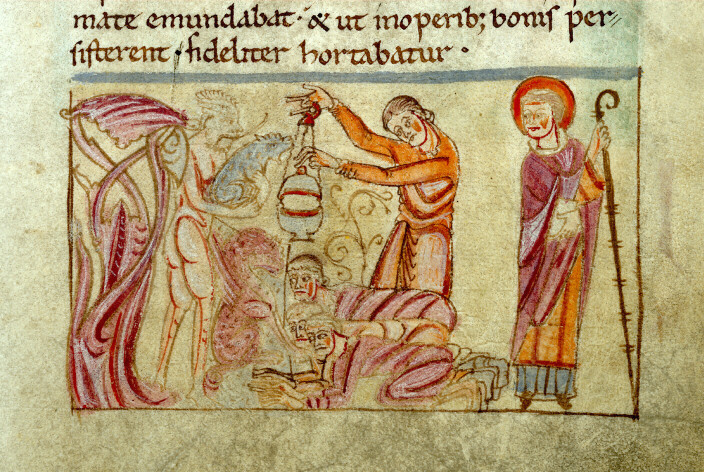 mate emundabat · & ut inoperib; bonis per⸗
sisterent , fideliter hortabatur ·